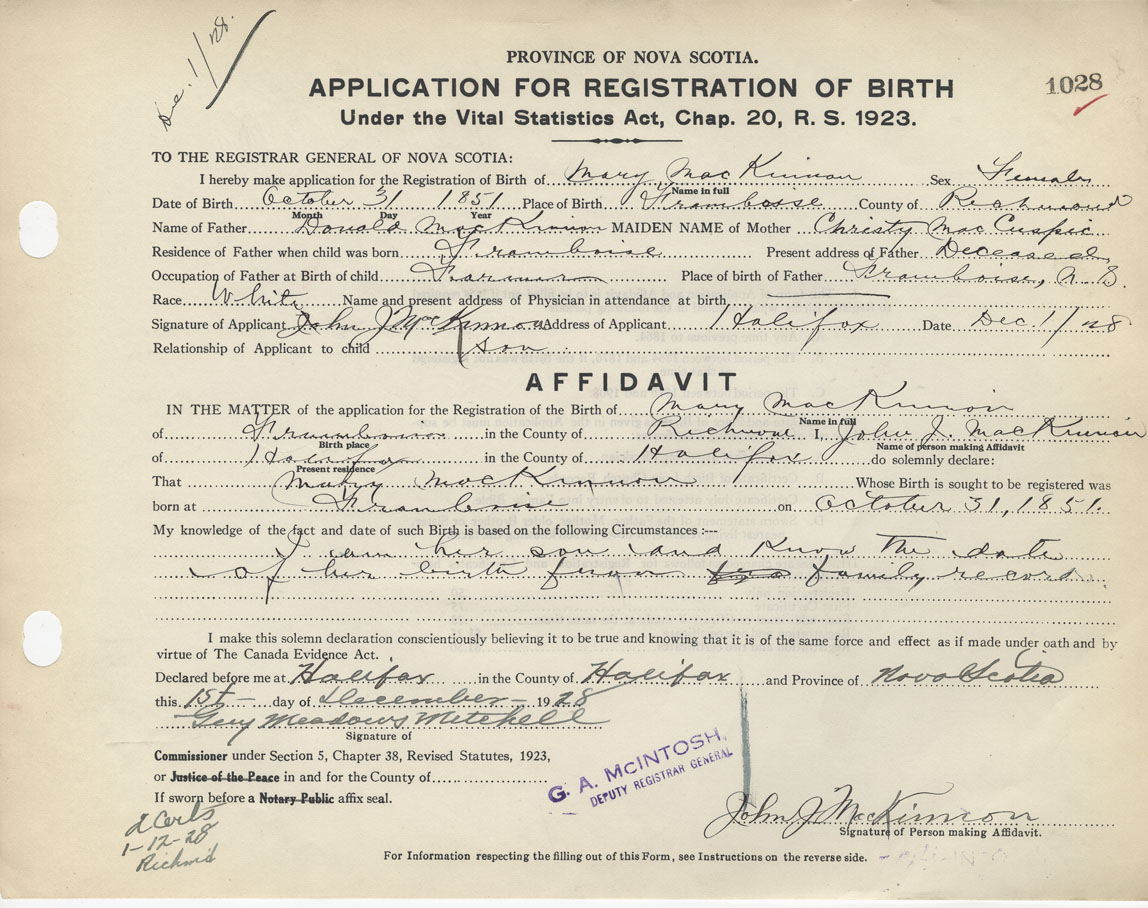 Dec. 1/28.
PROVINCE OF NOVA SCOTIA.
APPLICATION FOR REGISTRATION OF BIRTH
1028
Under the Vital Statistics Act, Chap. 20, R. S. 1923.
TO THE REGISTRAR GENERAL OF NOVA SCOTIA:
I hereby make application for the Registration of Birth of Mary MacKinnon Sex Female
Name in full
Date of Birth October 31 1851 Place of Birth Framboise County of Richmond
Month Day Year
Name of Father Donald MacKinnon MAIDEN NAME of Mother Christy MacCuspic
Residence of Father when child was born Framboise Present address of Father Deceased
Occupation of Father at Birth of child Farmer Place of birth of Father Framboise, N.S.
Race White Name and present address of Physician in attendance at birth
Signature of Applicant John J McKinnon Address of Applicant Halifax Date Dec 1/28
Relationship of Applicant to child son
AFFIDAVIT
IN THE MATTER of the application for the Registration of the Birth of Mary MacKinnon
Name in full
of Framboise in the County of Richmond I, John J. MacKinnon
Birth place Name of person making Affidavit
of Halifax in the County of Halifax do solemnly declare:
Present residence
That Mary MacKinnon Whose Birth is sought to be registered was
born at Framboise on October 31, 1851.
My knowledge of the fact and date of such Birth is based on the following Circumstances :---
I am her son and know the date
of her birth from family record.
I make this solemn declaration conscientiously believing it to be true and knowing that it is of the same force and effect as if made under oath and by
virtue of The Canada Evidence Act.
Declared before me at Halifax in the County of Halifax and Province of Nova Scotia
this 1st day of December 1928
Guy Meadows Mitchell
Signature of
Commissioner under Section 5, Chapter 38, Revised Statutes, 1923,
or Justice of the Peace in and for the County of
If sworn before a Notary Public affix seal.
G. A. McINTOSH,
DEPUTY REGISTRAR GENERAL
2 Certs
1-12-28
Richm'd
John J MacKinnon
Signature of Person making Affidavit.
For Information respecting the filling out of this Form, see Instructions on the reverse side.